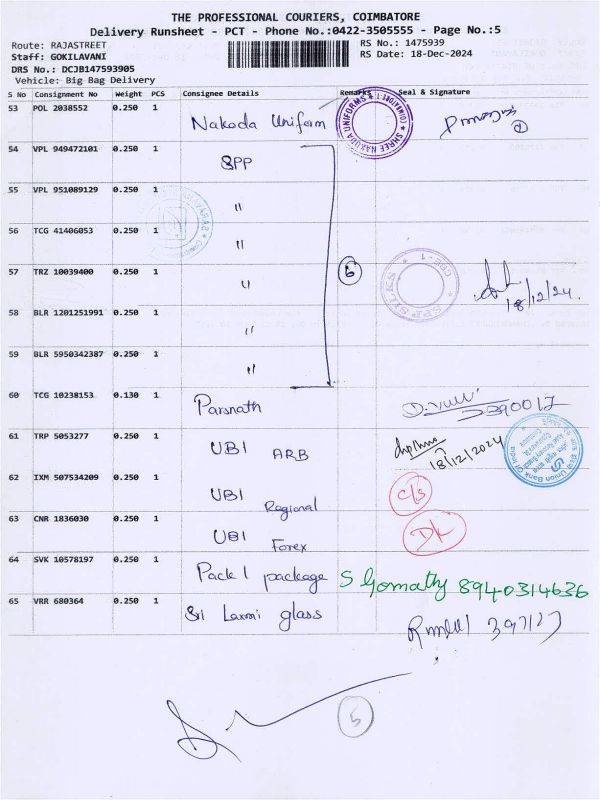 THE PROFESSIONAL COURIERS, COIMBATORE
Delivery Runsheet - PCT - Phone No.:0422-3505555 - Page No.:5
Route: RAJASTREET RS No.: 1475939
Staff: GOKILAVANI RS Date: 18-Dec-2024
DRS No.: DCJB147593905
Vehicle: Big Bag Delivery
S No Consignment No Weight PCS Consignee Details Remarks Seal & Signature
53 POL 2038552 0.250 1 Nakoda Uniform
SHREE NAKUDA UNIFORMS
54 VPL 949472101 0.250 1 SPP
55 VPL 951089129 0.250 1 "
56 TCG 41406053 0.250 1 "
57 TRZ 10039400 0.250 1 " 6
SPP SILKS CBE - 1
18/12/24
58 BLR 1201251991 0.250 1 "
59 BLR 5950342387 0.250 1 "
60 TCG 10238153 0.130 1 Parsnath
61 TRP 5053277 0.250 1 UBI ARB 18/12/2024
Union Bank Of India
62 IXM 507534209 0.250 1 UBI Regional C/S
63 CNR 1836030 0.250 1 UBI Forex
64 SVK 10578197 0.250 1 Pack 1 package S Gomathy 8940314636
65 VRR 680364 0.250 1 Sri Laxmi glass
5